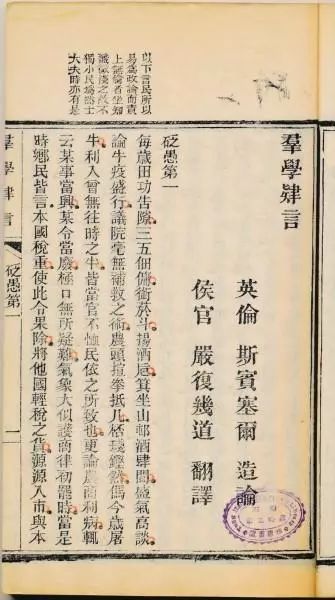 羣學肄言
英倫 斯賓塞爾 造論
侯官 嚴復幾道 翻譯
砭愚第一
以下言民所以
易為政論而責
上無藝者坐知
識淺之故不
獨小民為然士
大夫時亦有是
每歲田功告隙三五佃傭銜菸斗揚酒卮箕坐山邨酒肆間盛氣高談
論牛疫盛行議院毫無補救之術農頭揎拳抵几桮琖鏗然偶今歲屠
牛利人曾無往時之半皆當官不恤民依之所致也更論農商利病輒
云某事當興某令當廢極口無所疑難氣象大似護商律初罷時當是
時鄉民皆言本國稅重使此令果除將他國輕稅之貨源源入市與本
羣學肄言
砭愚第一